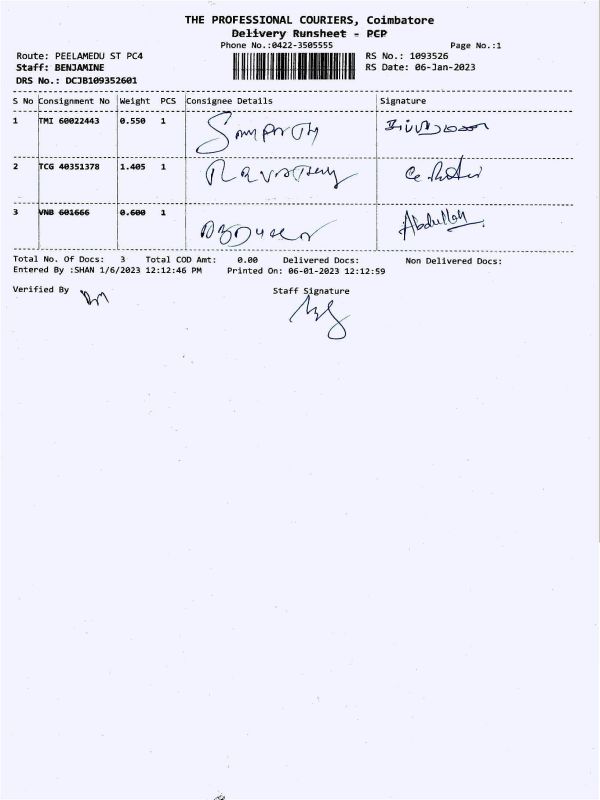 THE PROFESSIONAL COURIERS, Coimbatore
Delivery Runsheet - PCP
Phone No.:0422-3505555 Page No.:1
Route: PEELAMEDU ST PC4 RS No.: 1093526
Staff: BENJAMINE RS Date: 06-Jan-2023
DRS No.: DCJB109352601
S No Consignment No Weight PCS Consignee Details Signature
1 TMI 60022443 0.550 1
2 TCG 40351378 1.405 1
3 VNB 601666 0.600 1 Abdullah
Total No. Of Docs: 3 Total COD Amt: 0.00 Delivered Docs: Non Delivered Docs:
Entered By :SHAN 1/6/2023 12:12:46 PM Printed On: 06-01-2023 12:12:59
Verified By Staff Signature